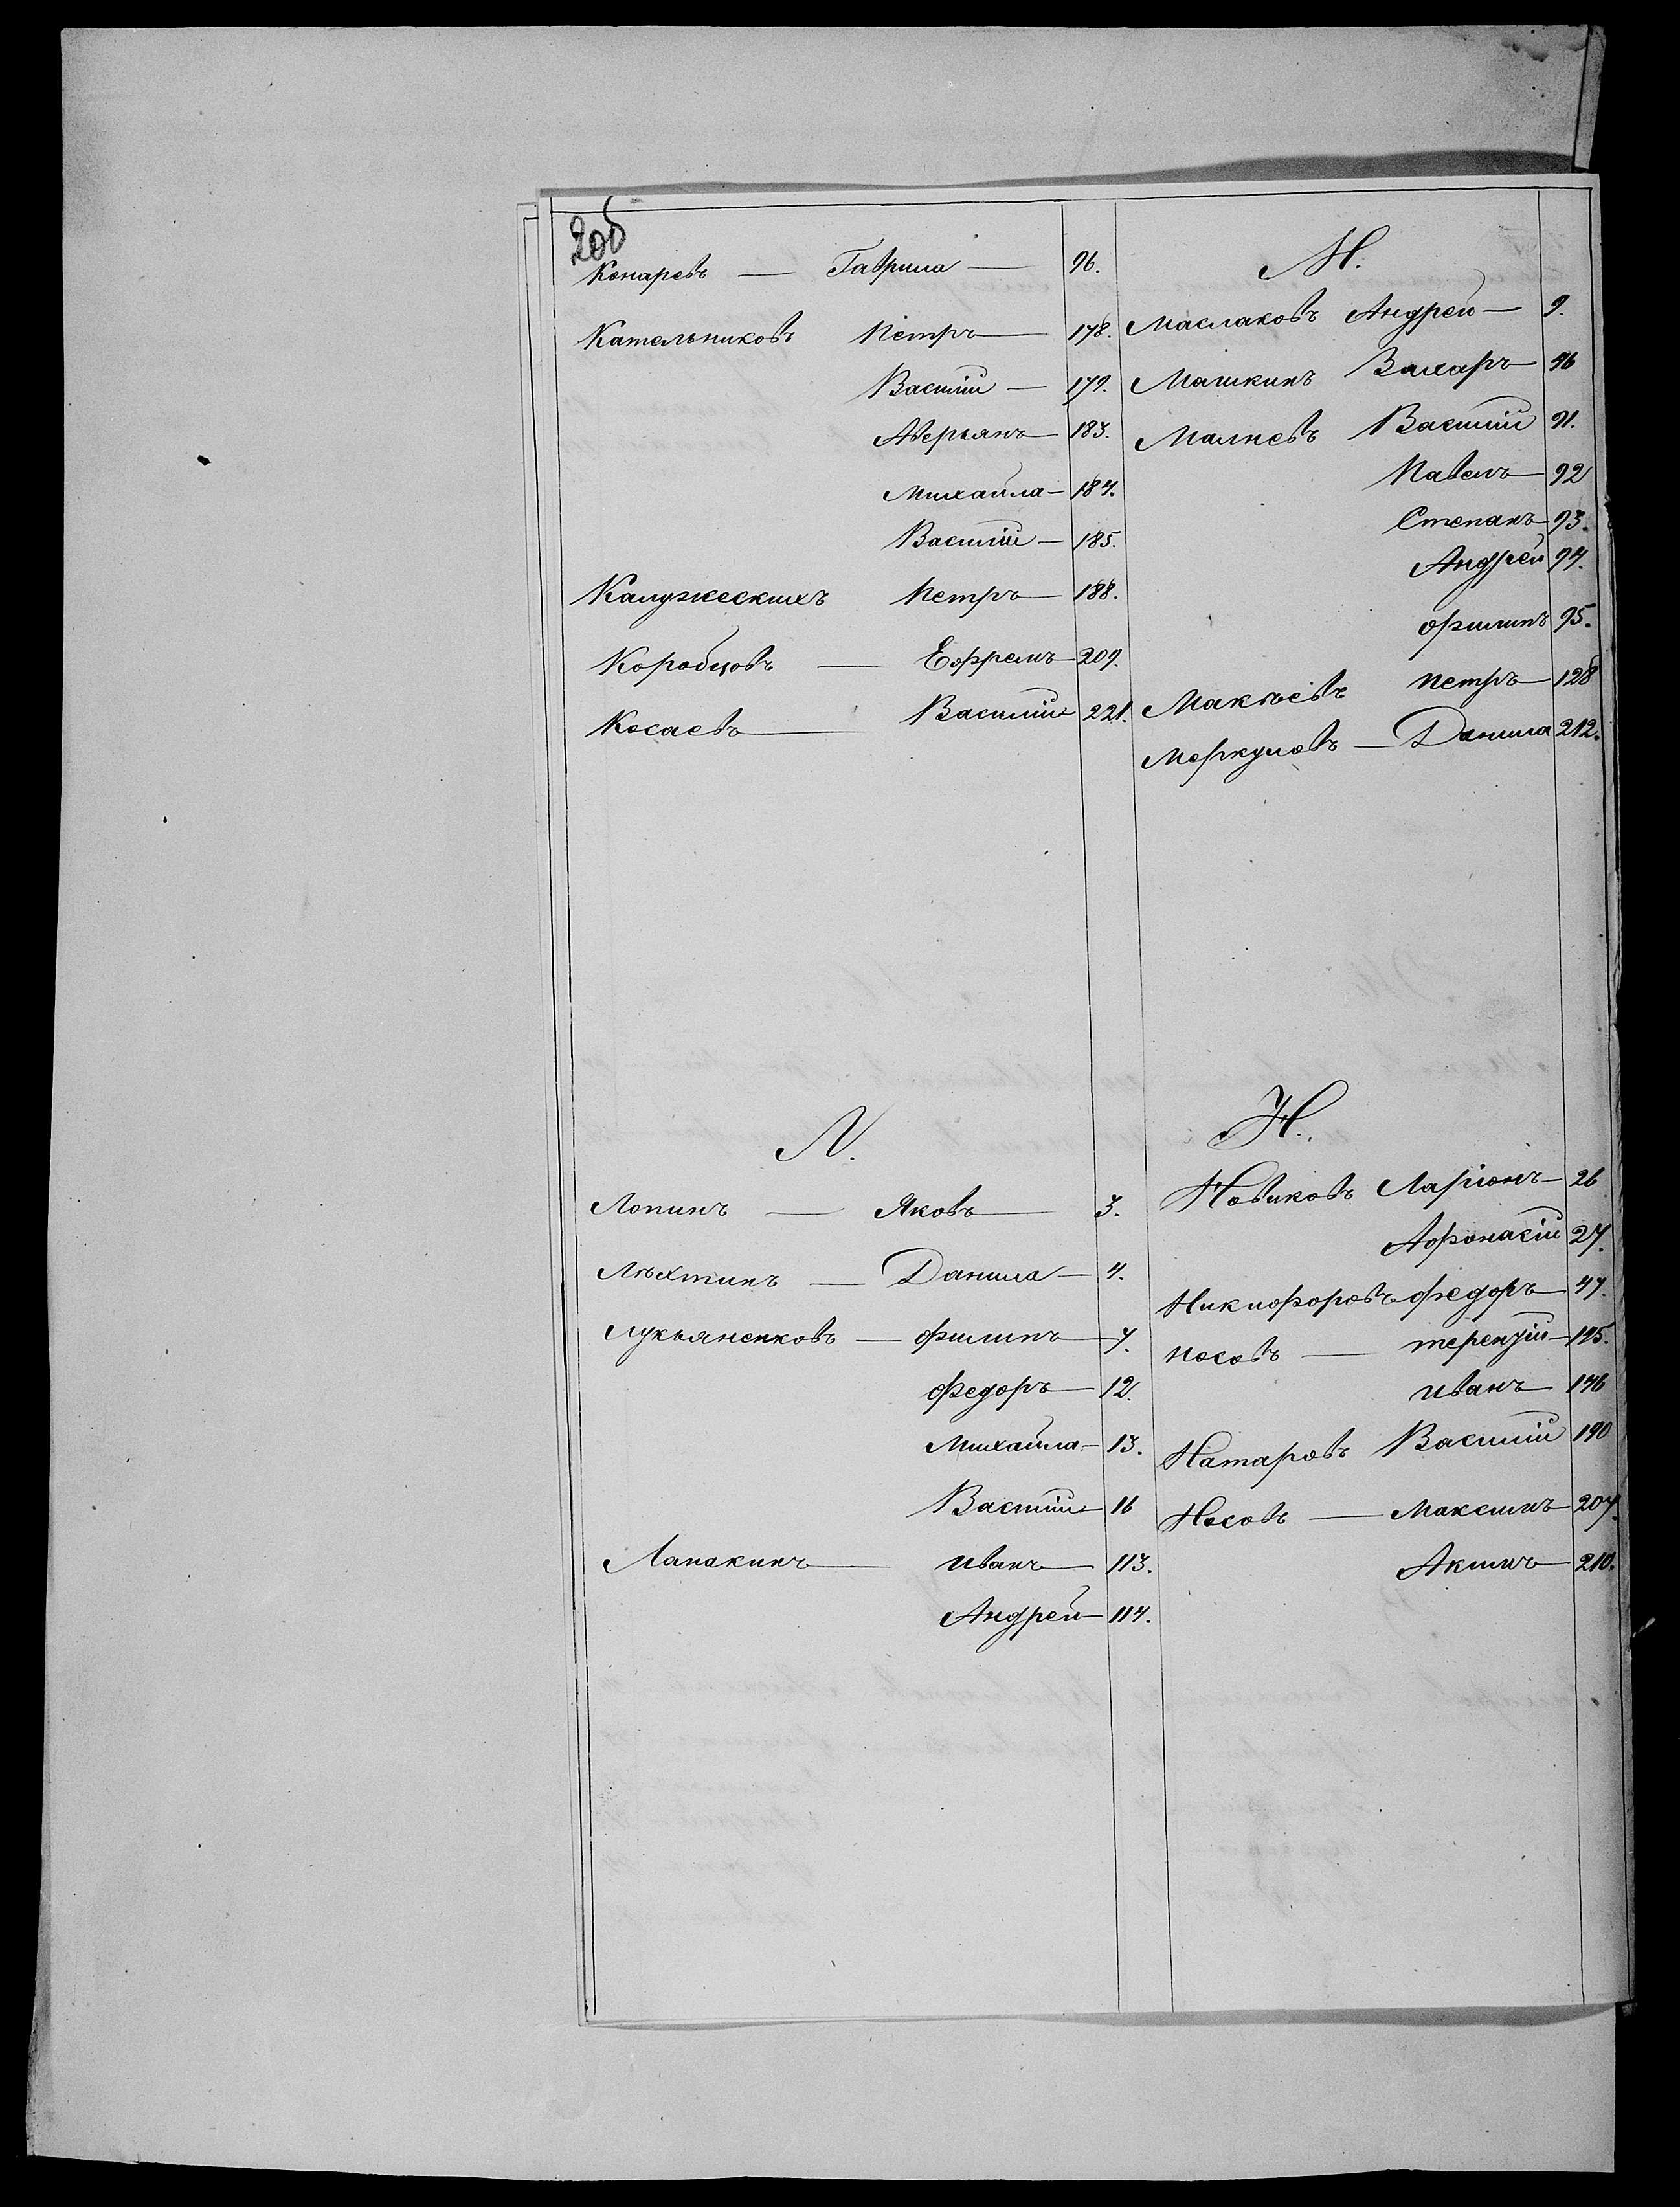 2об
Конаревъ — Гаврила — 96.
Кательниковъ Петръ — 178.
Василій — 179.
Аверьянъ — 183.
Михайла — 184.
Василій — 185.
Калужескихъ Петръ — 188.
Коробцовъ — Ефремъ — 209.
Косаевъ — Василій 221.
Л.
Лопинъ — Яковъ — 3.
Лѣхтинъ — Данила — 4.
Лукьяненковъ — Филипъ — 7.
Федоръ — 12.
Михайла — 13.
Василій — 16
Лапакинъ — Иванъ — 113.
Андрей — 114.
М.
Маслаковъ Андрей — 9.
Машкинъ Захаръ — 46
Малневъ Василій 91.
Павелъ — 92
Степанъ — 93.
Андрей 94.
Филипъ 95.
Макѣевъ Петръ — 128
Меркуловъ — Данила 212.
Н.
Новиковъ Ларіонъ — 26
Афонасій 27.
Никифоровъ Федоръ — 47.
Носовъ — Терентій — 145.
Иванъ — 146
Натаровъ Василій 190
Носовъ — Максимъ — 207.
Акимъ — 210.